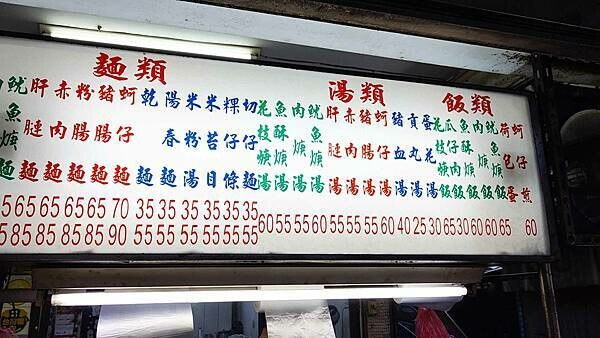 麵類
魷魚焿麵 65 85
肝腱麵 65 85
赤肉麵 65 85
粉腸麵 65 85
豬腸麵 65 85
蚵仔麵 70 90
乾麵 35 55
陽春麵 35 55
米粉湯 35 55
米苔目 35 55
粿仔條 35 55
切仔麵 35 55
湯類
花枝焿湯 60
魚酥焿湯 55
肉焿湯 55
魷魚焿湯 60
肝腱湯 55
赤肉湯 55
豬腸湯 55
蚵仔湯 60
豬血湯 40
貢丸湯 25
蛋花湯 30
飯類
花枝焿飯 65
瓜仔肉飯 30
魚酥焿飯 60
肉焿飯 60
魷魚焿飯 65
荷包蛋
蚵仔煎 60